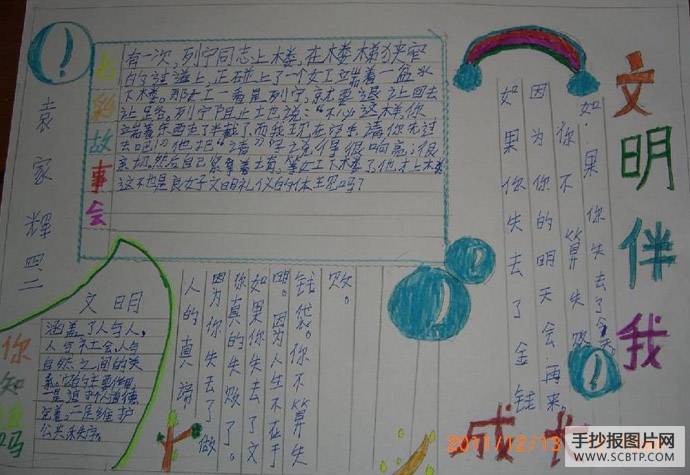 文明伴我
成长
袁家辉
彩故事会
有一次，列宁同志上楼，在楼梯狭窄
的过道上，正碰上了一个女工端着一盆水
下楼。那女工一看是列宁，就要退让回去
让路。列宁阻止她说："不必这样，你
端着东西走了半截，而我现在空手，请你先过
去吧！"他把"请"字说得很响亮，很
亲切。然后自己紧靠着墙，等女工下楼了，他才上楼
这不也是良好文明礼仪的体现吗？
如果你失去了今天
你不算失败
因为你的明天会再来
如果你失去了金钱
败。
钱袋。你不算失
明。因为人生不在于
如果你失去了文
你真的失败了。
因为你失去了做
人的真谛
你知道吗
文明
涵盖了人与人，
人与社会，人与
自然之间的关
系。它的主要作用
一是追求人道德
完善，二是维护
公共秩序。
2011/12/13
手抄报图片网
WWW.SCBTP.COM